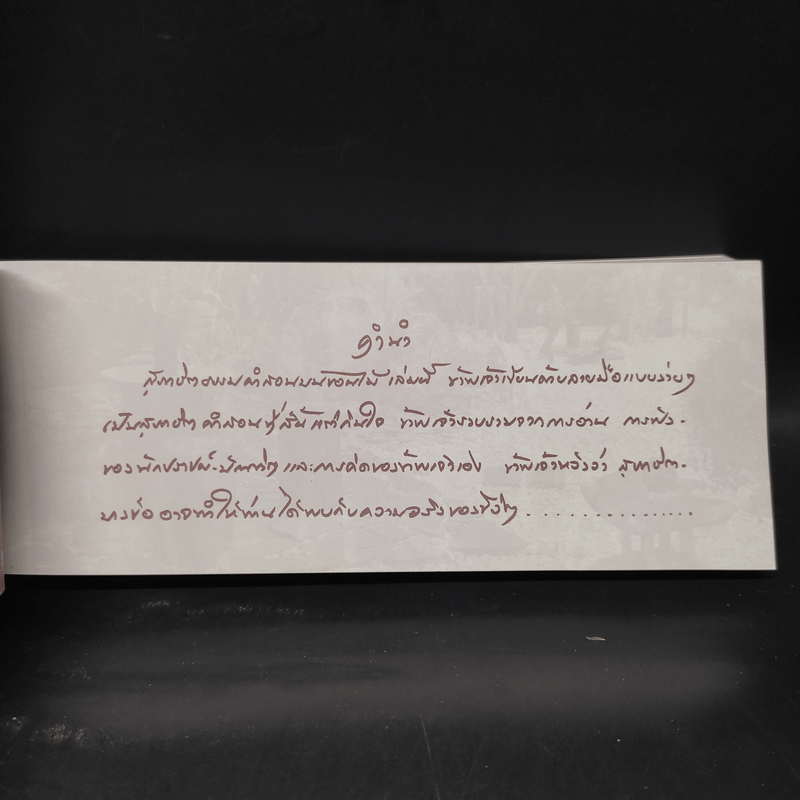 คำนำ
สุภาษิต อบรมคำสอนบนขอนไม้ เล่มนี้ ข้าพเจ้าเขียนด้วยลายมือแบบง่ายๆ
เป็นสุภาษิต คำสอนที่สั้น กินใจ ข้าพเจ้ารวบรวมจากการอ่าน การฟัง-
ของนักปราชญ์-บัณฑิต และการคิดของข้าพเจ้าเอง ข้าพเจ้าหวังว่า สุภาษิต-
บางข้อ อาจทำให้ท่าน ได้พบกับความจริงของชีวิต ...............